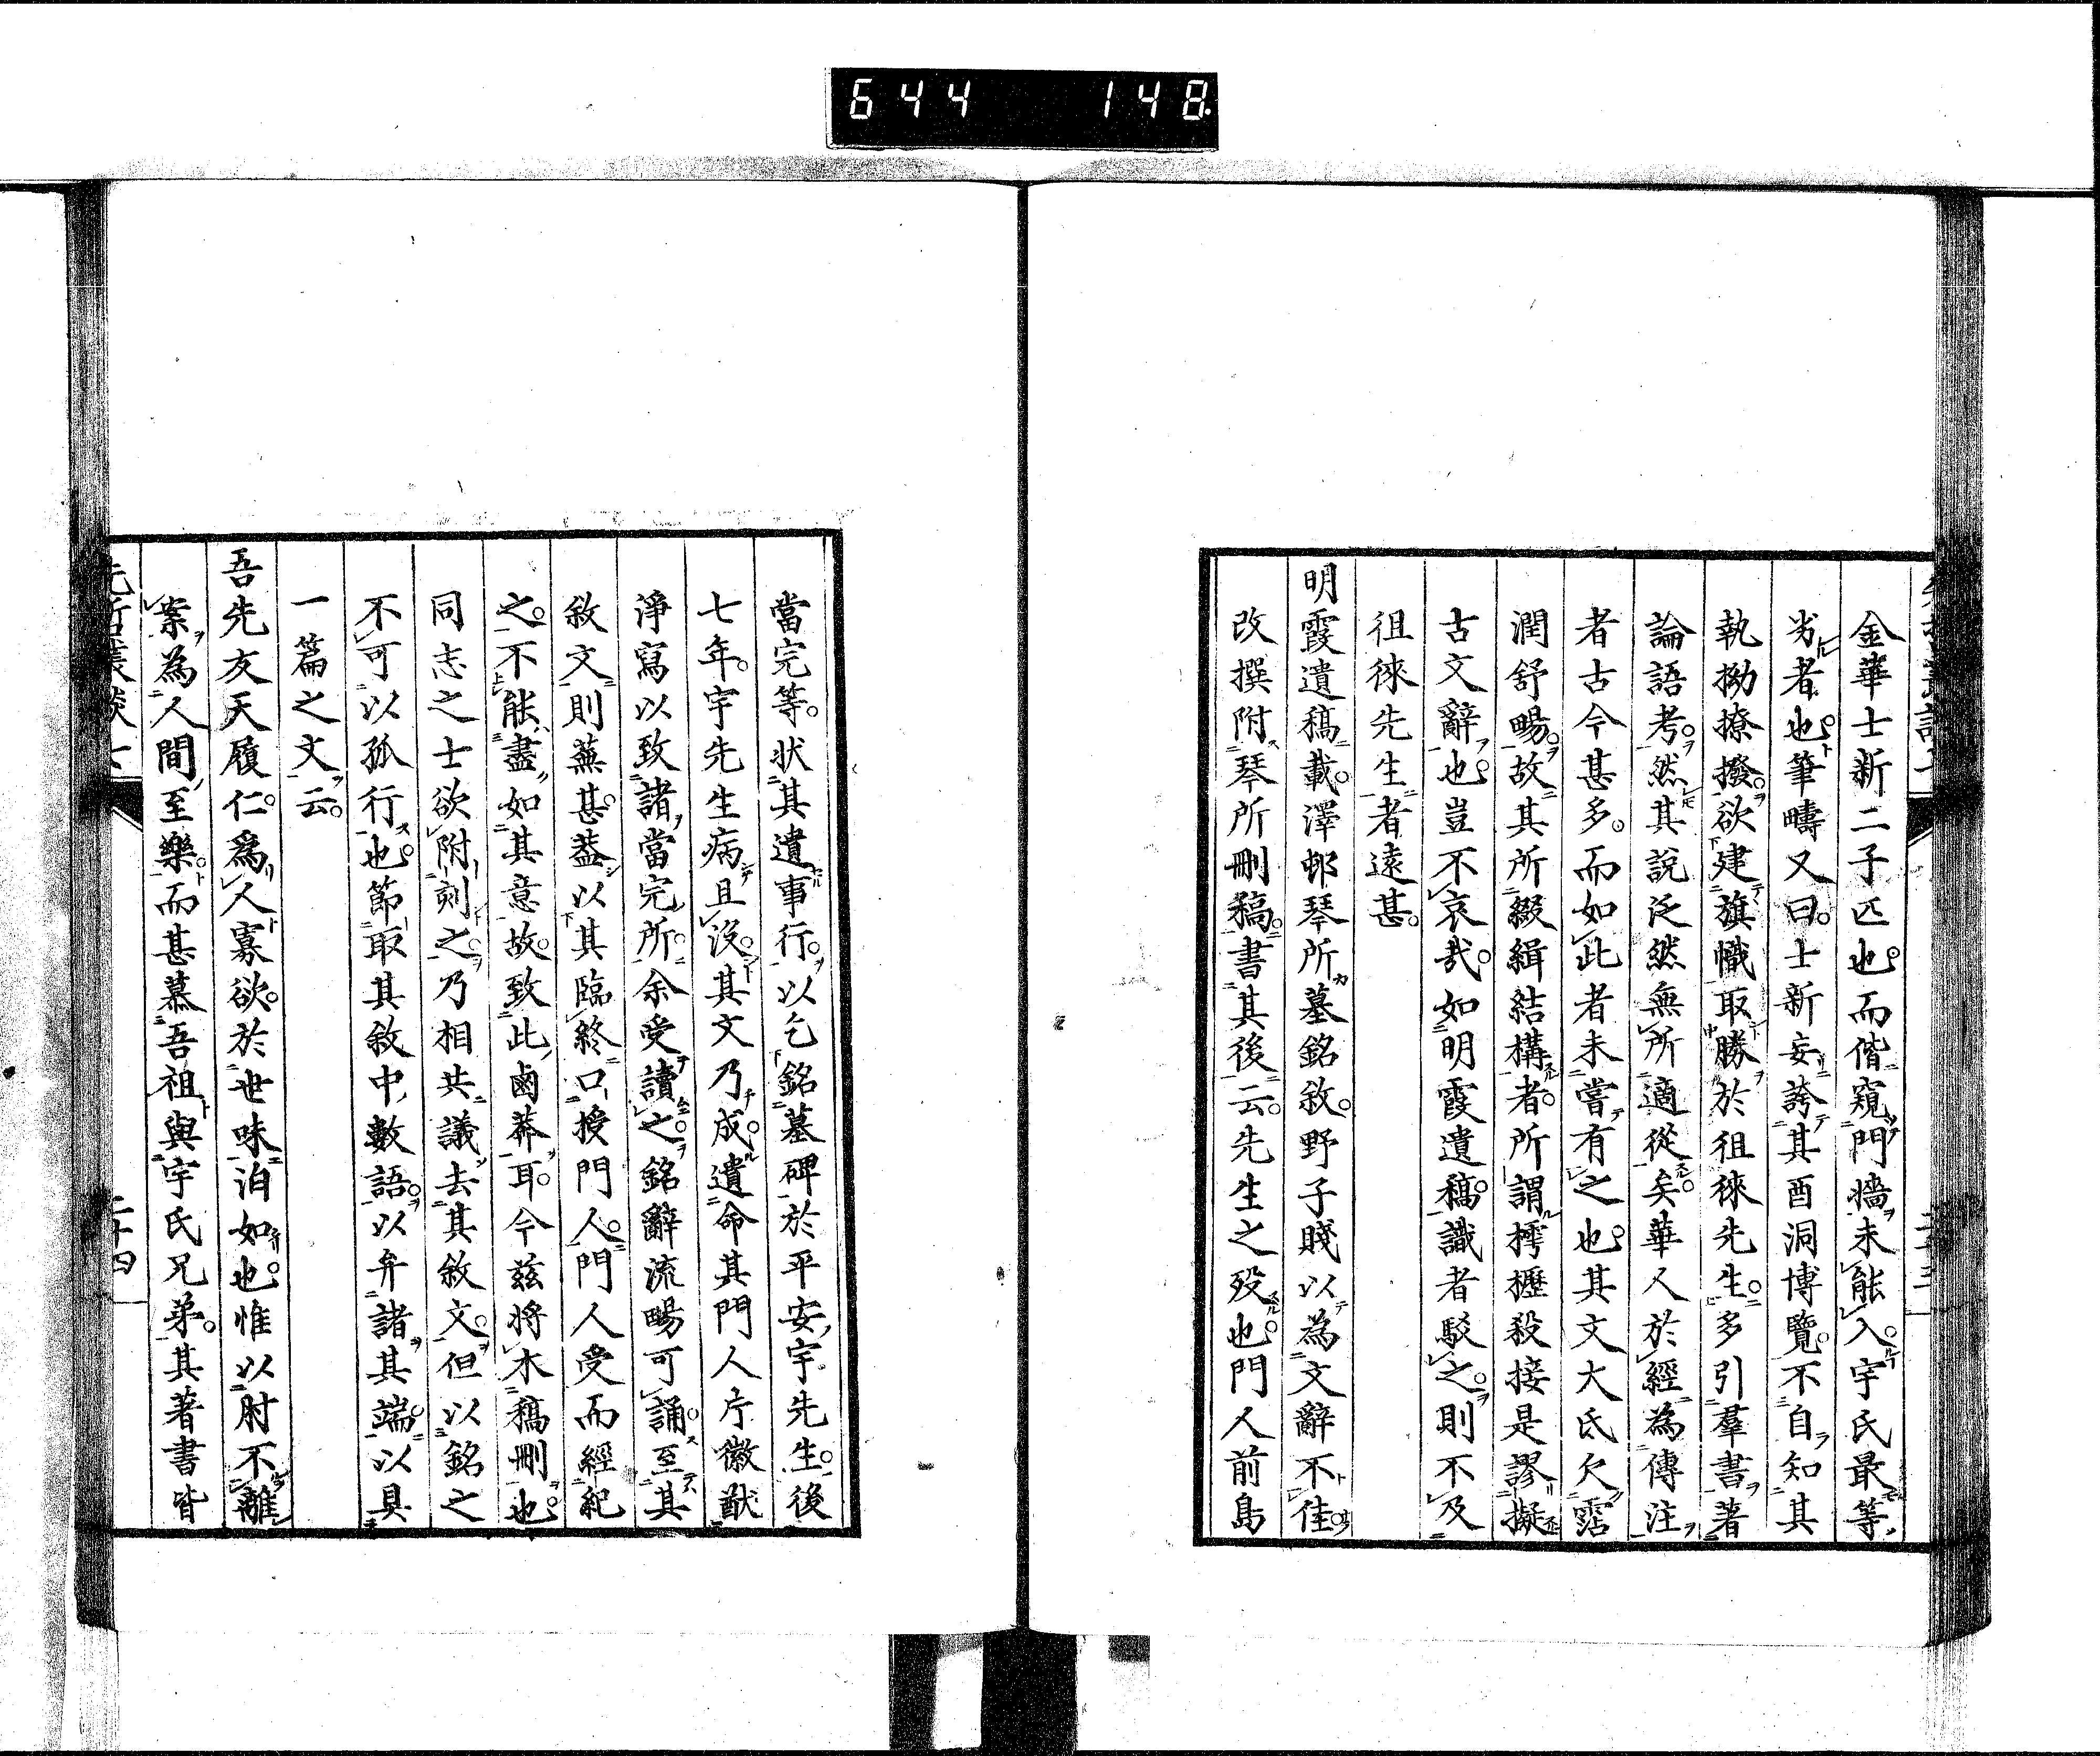 644 148
金華士新二子匹也而偕窺門墻未能入宇氏最等
劣者也筆疇又曰士新妄誇其酉洞博覽不自知其
執拗撩撥欲建旗幟取勝於徂徠先生多引羣書著
論語考然其說泛然無所適從矣華人於經為傳注
者古今甚多而如此者未嘗有之也其文大氐欠霑
潤舒暢故其所綴緝結構者所謂樗櫪殺接是謬擬
古文辭也豈不哀哉如明霞遺稿識者駁之則不及
徂徠先生者遠甚
明霞遺稿載澤邨琴所墓銘敘野子賤以為文辭不佳
改撰附琴所刪稿書其後云先生之歿也門人前島
當完等狀其遺事行以乞銘墓碑於平安宇先生後
七年宇先生病且沒其文乃成遺命其門人片徽猷
淨寫以致諸當完所余受讀之銘辭流暢可誦至其
敘文則蕪甚蓋以其臨終口授門人門人受而經紀
之不能盡如其意故致此鹵莽耳今茲將木稿刪也
同志之士欲附刻之乃相共議去其敘文但以銘之
不可以孤行也節取其敘中數語以弁諸其端以具
一篇之文云
吾先友天履仁爲人寡欲於世味泊如也惟以肘不離
案為人間至樂而甚慕吾祖與宇氏兄弟其著書皆
先哲叢談七
二十四